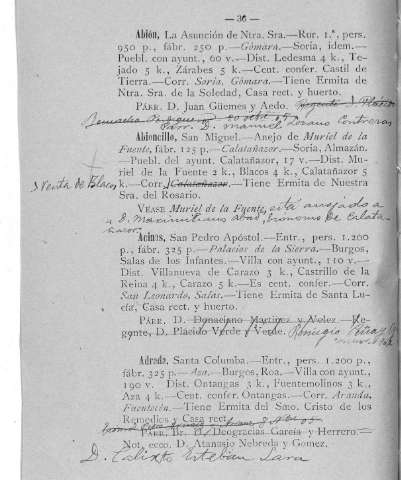 — 36 —
Abión, La Asunción de Ntra. Sra.—Rur. 1.ª, pers.
950 p., fábr. 250 p.—Gómara.—Soria, idem.—
Puebl. con ayunt., 60 v.—Dist. Ledesma 4 k., Te-
jado 5 k., Zárabes 5 k.—Cent. confer. Castil de
Tierra.—Corr. Soria, Gómara.—Tiene Ermita de
Ntra. Sra. de la Soledad, Casa rect. y huerto.
PÁRR. D. Juan Güemes y Aedo.
Párr. D. Manuel Lozano Contreras
Abioncillo, San Miguel.—Anejo de Muriel de la
Fuente, fábr. 125 p.—Calatañazor.—Soria, Almazán.
—Puebl. del ayunt. Calatañazor, 17 v.—Dist. Mu-
riel de la Fuente 2 k., Blacos 4 k., Calatañazor 5
Venta de Blacos k.—Corr. Calatañazor.—Tiene Ermita de Nuestra
Sra. del Rosario.
VÉASE Muriel de la Fuente, está anejado a
D. Maximiliano Abad, Ecónomo de Calata
ñazor.
Acinas, San Pedro Apóstol.—Entr., pers. 1.200
p., fábr. 325 p.—Palacios de la Sierra.—Burgos,
Salas de los Infantes.—Villa con ayunt., 110 v.—
Dist. Villanueva de Carazo 3 k., Castrillo de la
Reina 4 k., Carazo 5 k.—Es cent. confer.—Corr.
San Leonardo, Salas.—Tiene Ermita de Santa Lu-
cía, Casa rect. y huerto.
PÁRR. D. Donaciano Martínez y Velez.—Re-
gente, D. Plácido Verde y Verde. Remigio
Adrada, Santa Columba.—Entr., pers. 1.200 p.,
fábr. 325 p.—Aza.—Burgos, Roa.—Villa con ayunt.,
190 v. Dist. Ontangas 3 k., Fuentemolinos 3 k.,
Aza 4 k.—Cent. confer. Ontangas.—Corr. Aranda,
Fuentecén.—Tiene Ermita del Smo. Cristo de los
Remedios y Casa rect.
PÁRR. Br. D. Deogracias García y Herrero.—
Not. ecco. D. Atanasio Nebreda y Gomez.
D. Calixto Esteban Lara